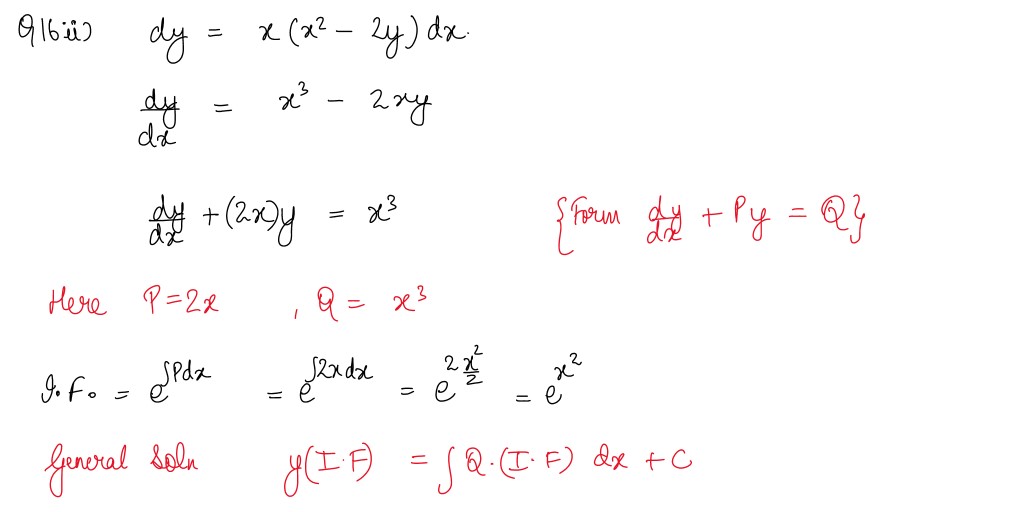 Q16 ii) dy = x (x² - 2y) dx.
dy/dx = x³ - 2xy
dy/dx + (2x)y = x³ {Form dy/dx + Py = Q}
Here P = 2x , Q = x³
I.F. = e^∫Pdx = e^∫2x dx = e^2 x²/2 = e^x²
General Soln y(I.F) = ∫ Q.(I.F) dx + C